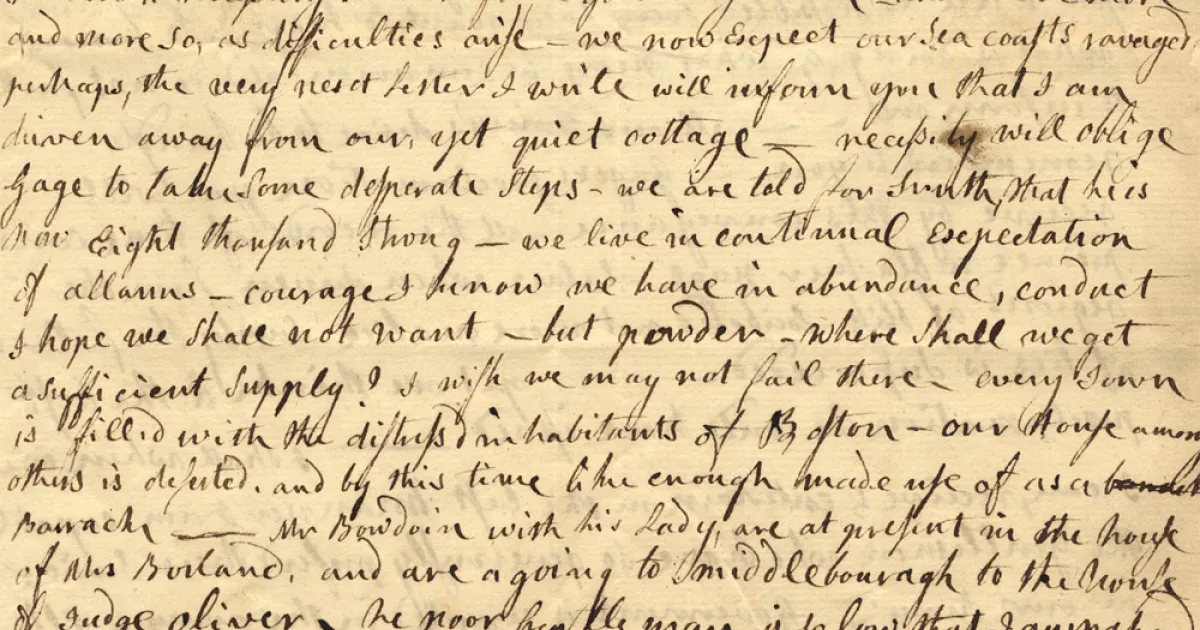 and more so, as difficulties arise — we now Expect our Sea coasts ravaged
perhaps, the very next Letter I write will inform you that I am
driven away from our, yet quiet cottage — necessity will oblige
Gage to take some desperate steps — we are told for Truth, that he is
now Eight thousand strong — we live in continual Expectation
of allarms — courage I know we have in abundance, conduct
I hope we shall not want — but powder — where shall we get
a sufficient supply? I wish we may not fail there — every Town
is filled with the distressd inhabitants of Boston — our House among
others is deserted, and by this time like enough made use of as a
Barrack — Mr Bowdoin with his Lady, are at present in the house
of Mrs Borland, and are a going to Middlebouragh to the house
of Judge Oliver — he poor Gentleman is so low that I